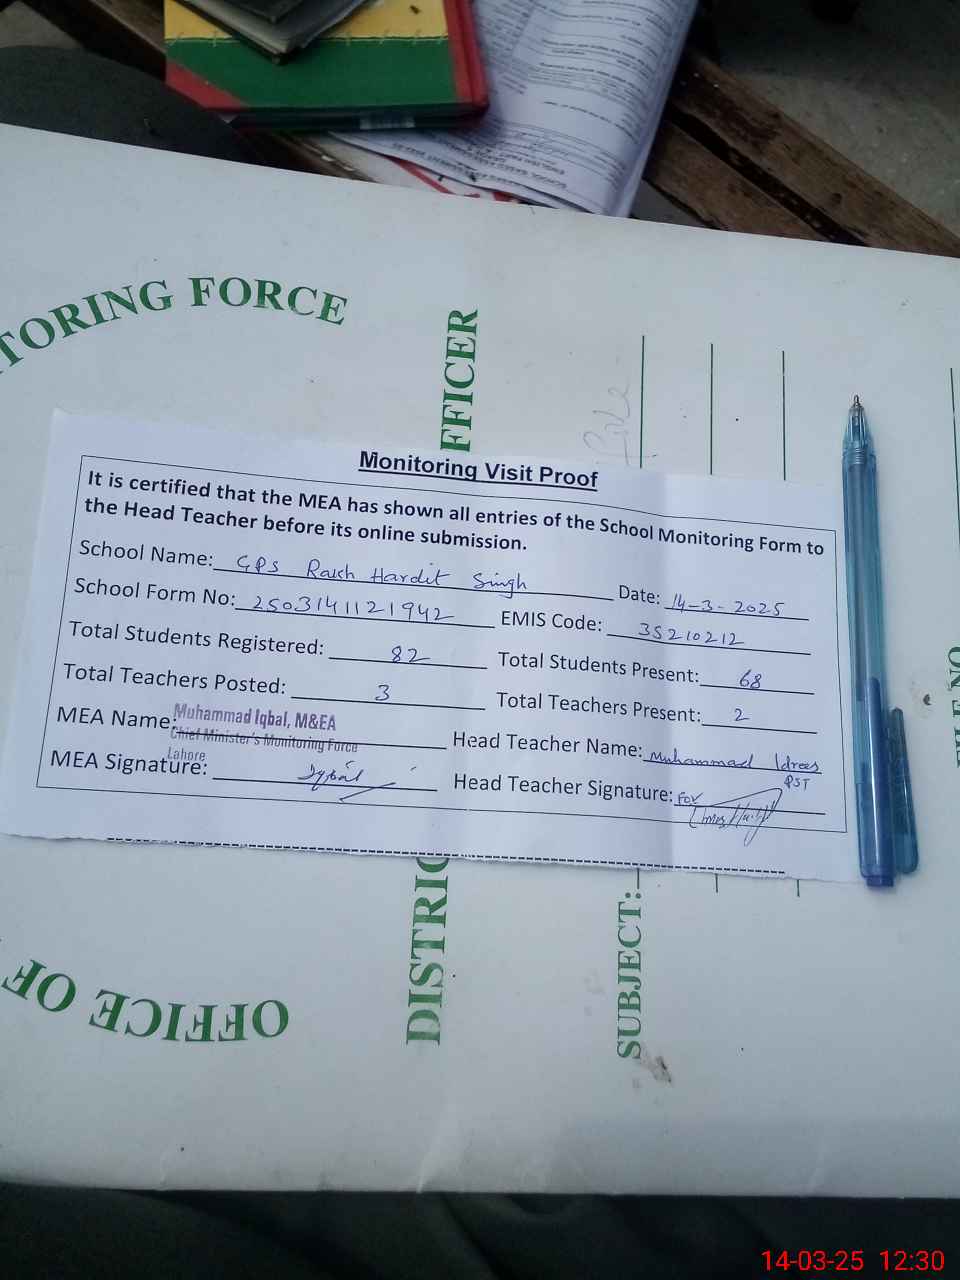 TORING FORCE
FFICER
Monitoring Visit Proof
It is certified that the MEA has shown all entries of the School Monitoring Form to
the Head Teacher before its online submission.
School Name: GPS Rakh Hardit Singh Date: 14-3-2025
School Form No: 2503141121942 EMIS Code: 35210212
Total Students Registered: 82 Total Students Present: 68
Total Teachers Posted: 3 Total Teachers Present: 2
MEA Name: Muhammad Iqbal, M&EA
Chief Minister's Monitoring Force
Lahore
Head Teacher Name: Muhammad Idrees
PST
MEA Signature: Iqbal Head Teacher Signature: For
DISTRIC
SUBJECT:
FILE NO
OFFICE OF
14-03-25 12:30